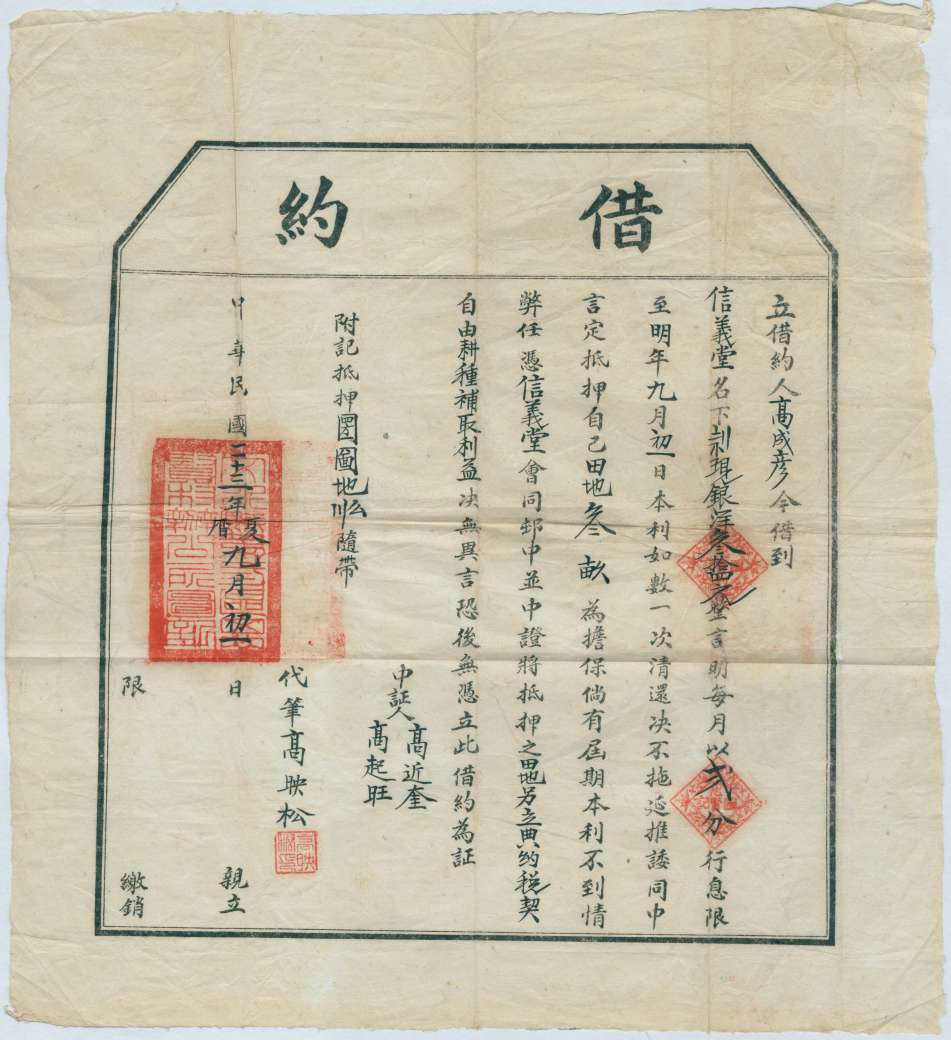 借約
立借約人高成彥今借到
信義堂名下剥現銀洋叁拾元整言明每月以弍分行息限
至明年九月初一日本利如數一次清還决不拖延推諉同中
言定抵押自己田地叁畝為擔保倘有屆期本利不到情
弊任憑信義堂會同邨中並中證將抵押之地另立典約税契
自由耕種補取利益决無異言恐後無憑立此借約為証
附記抵押圐圙地 隨帶
中証人高近奎
高起旺
代筆高映松
中華民國二十三年夏曆九月初一日親立
限 繳銷